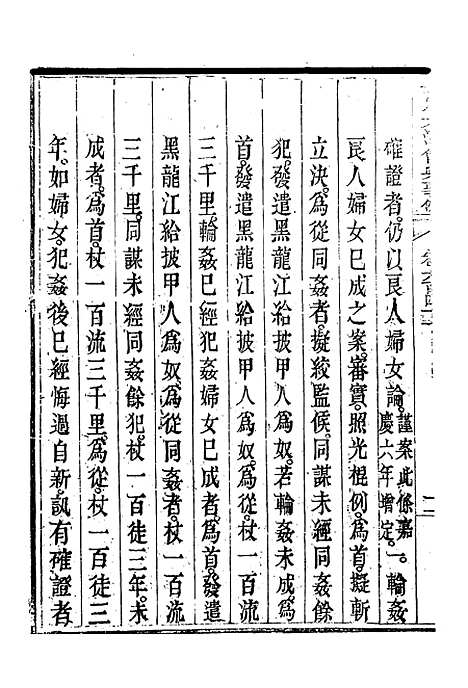 確證者。仍以良人婦女論。謹案此條嘉慶六年增定。一。輪姦
良人婦女已成之案。審實。照光棍例。爲首。擬斬
立決。爲從同姦者。擬絞監候。同謀未經同姦餘
犯。發遣黑龍江給披甲人爲奴。若輪姦未成。爲
首。發遣黑龍江給披甲人爲奴。爲從。杖一百流
三千里。輪姦已經犯姦婦女已成者。爲首。發遣
黑龍江給披甲人爲奴。爲從同姦者。杖一百流
三千里。同謀未經同姦餘犯。杖一百徒三年。未
成者。爲首。杖一百流三千里。爲從。杖一百徒三
年。如婦女。犯姦後已經悔過自新。訊有確證者